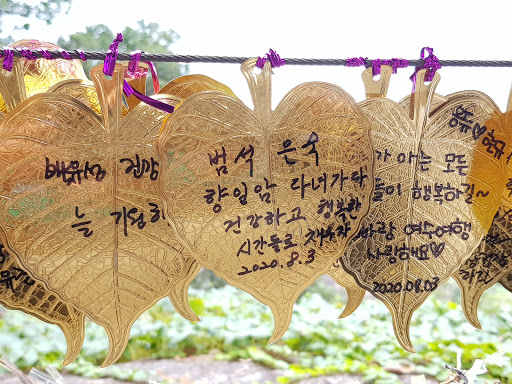 배유성 건강
늘 기원회
범석 은욱
향일암 다녀가다
건강하고 행복한
시간들로 채우자
2020.8.3
가 아는 모든
들이 행복하길~
바람 여수여행
사랑해요♡
2020.08.03